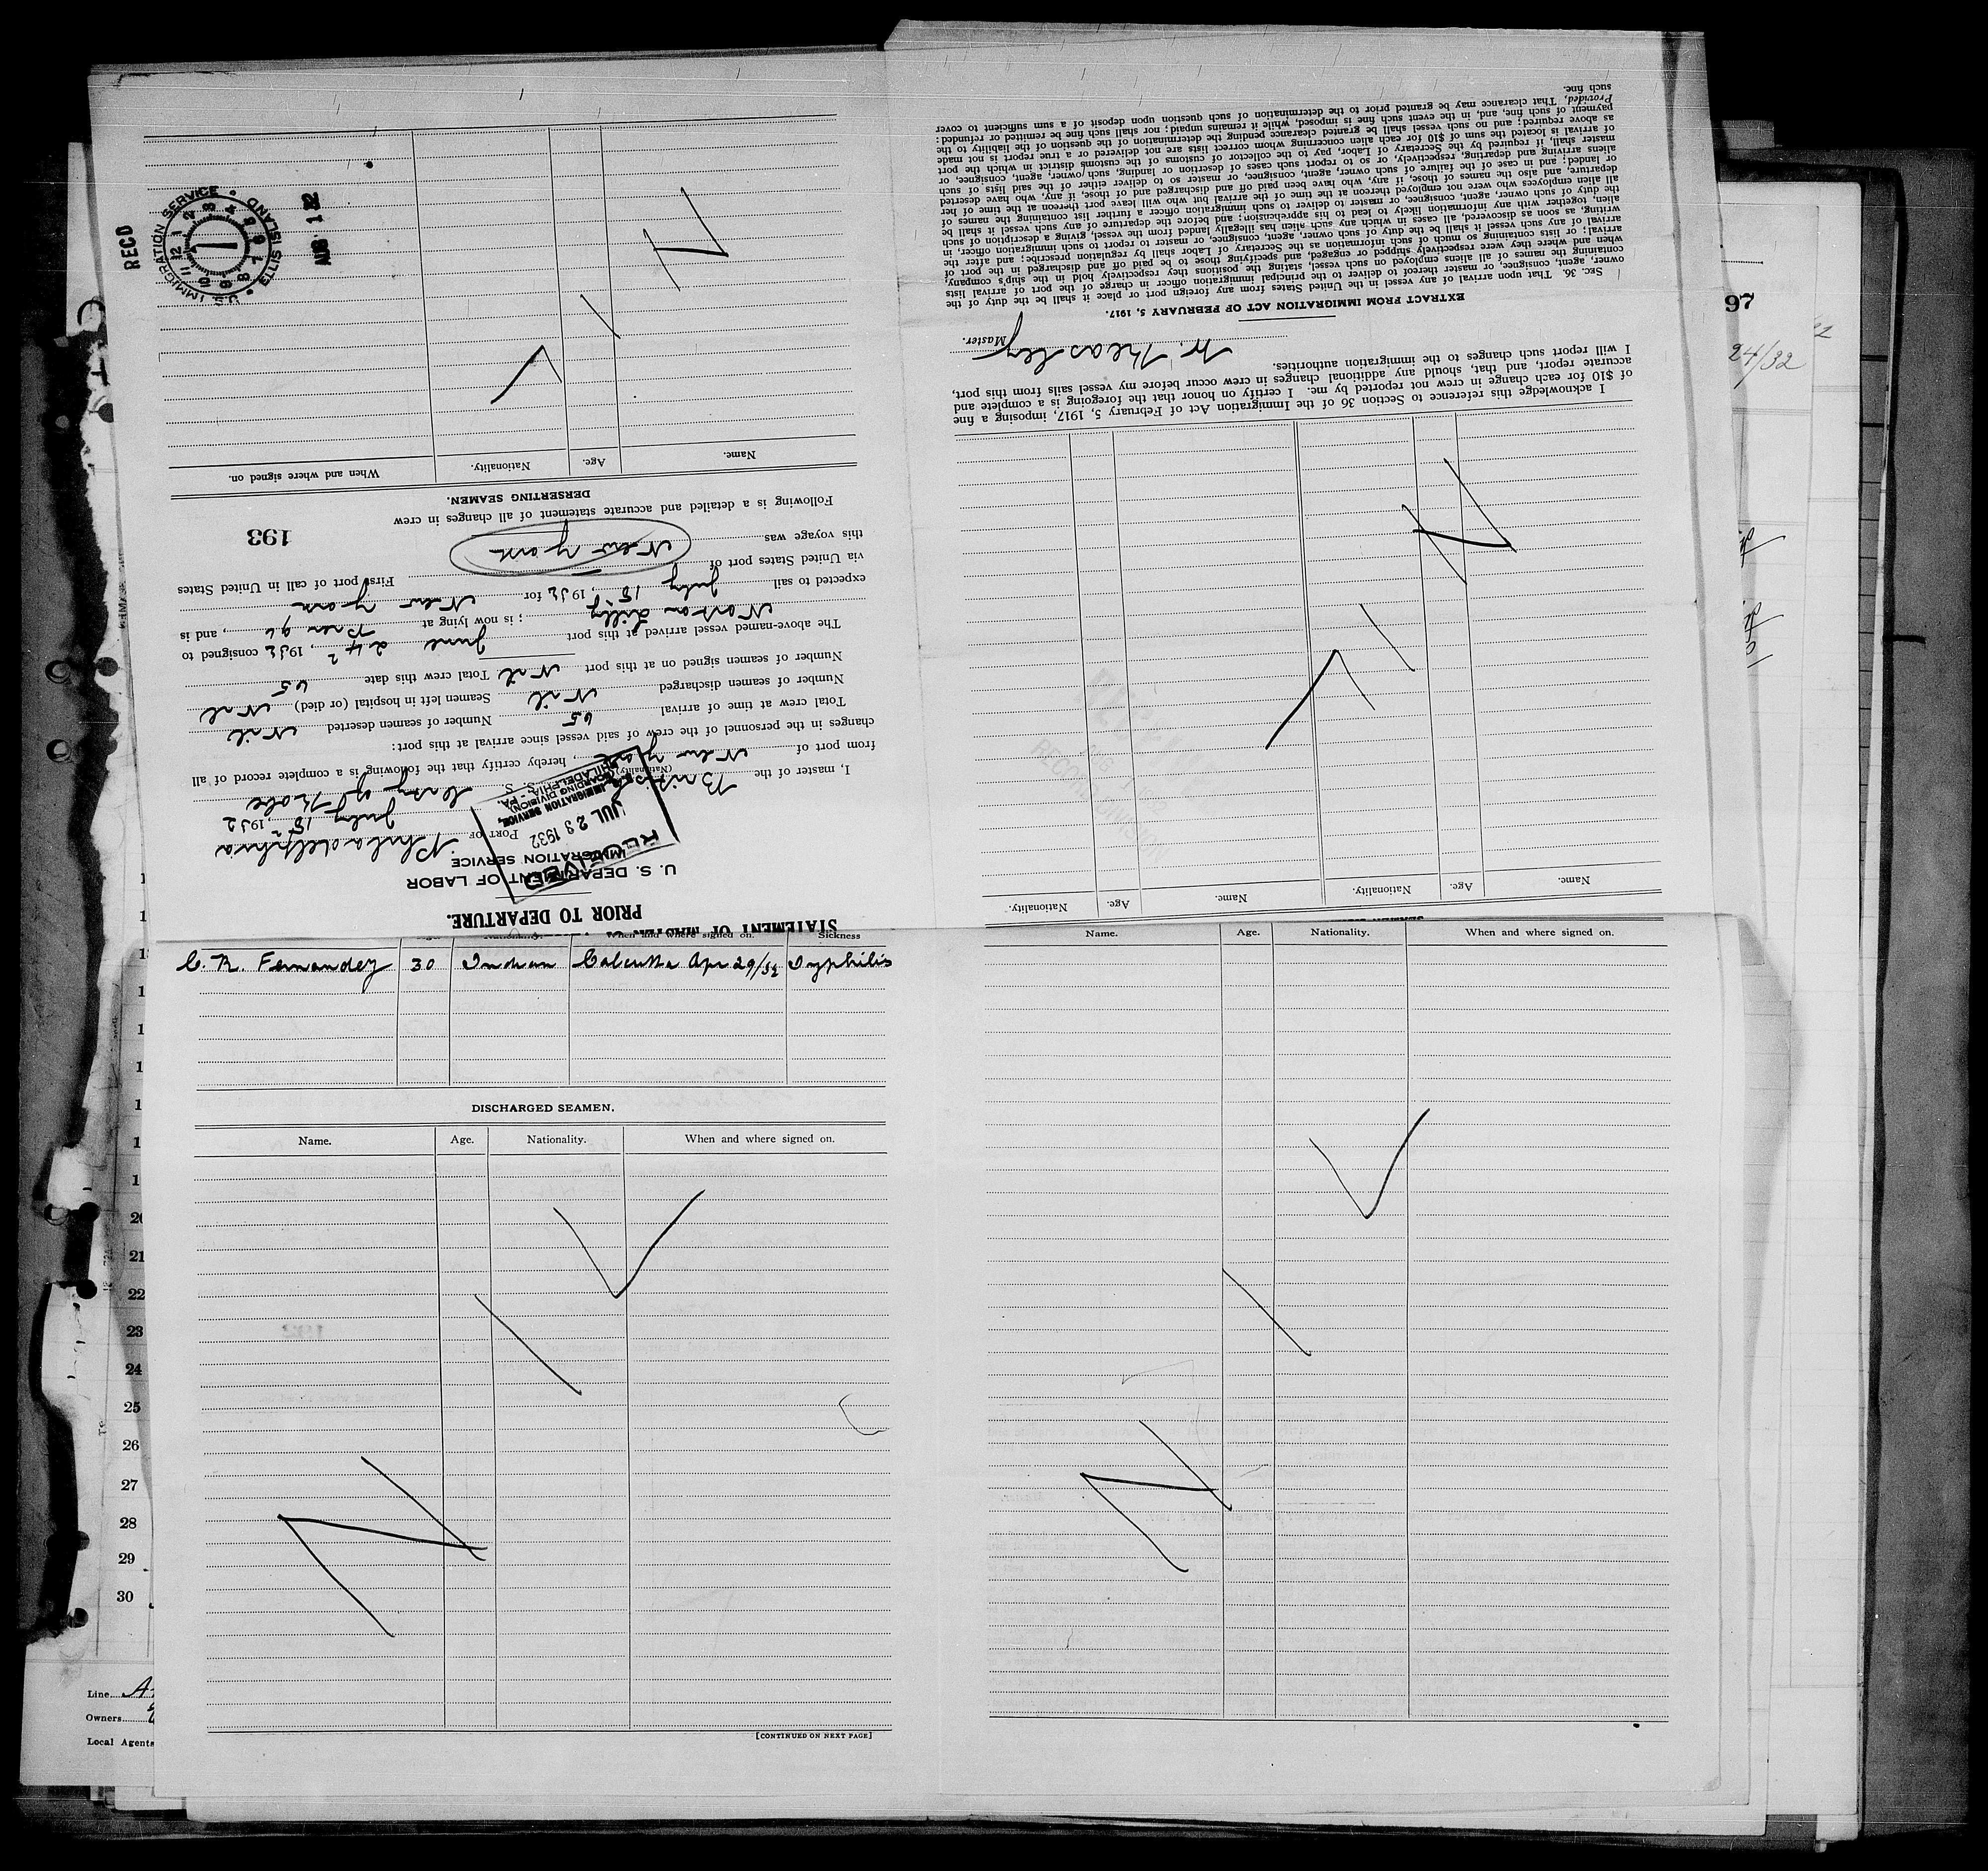 STATEMENT OF MASTER
PRIOR TO DEPARTURE.
U. S. DEPARTMENT OF LABOR
IMMIGRATION SERVICE
RECEIVED
JUL 28 1932
IMMIGRATION SERVICE,
(BOARDING DIVISION)
PHILADELPHIA - PA.
PORT OF Philadelphia
July 18, 1932
I, master of the British S. S. City of Kobe
(Nationality)
from port of New York, hereby certify that the following is a complete record of all
changes in the personnel of the crew of said vessel since arrival at this port:
Total crew at time of arrival 65 Number of seamen deserted Nil
Number of seamen discharged Nil Seamen left in hospital (or died) Nil
Number of seamen signed on at this port Nil Total crew this date 65
The above-named vessel arrived at this port June 24, 1932 consigned to
Norton Lilly; is now lying at Pier 96, and is
expected to sail July 18, 1932 for New York
via United States port of First port of call in United States
this voyage was New York
Following is a detailed and accurate statement of all changes in crew
193
DERSERTING SEAMEN.
Name. Age. Nationality. When and where signed on.
REC'D
U.S. IMMIGRATION SERVICE • ELLIS ISLAND
AUG. 1 32
Name. Age. Nationality. Name. Age. Nationality.
I acknowledge this reference to Section 36 of the Immigration Act of February 5, 1917, imposing a fine
of $10 for each change in crew not reported by me. I certify on honor that the foregoing is a complete and
accurate report, and that, should any additional changes in crew occur before my vessel sails from this port,
I will report such changes to the immigration authorities.
Master.
EXTRACT FROM IMMIGRATION ACT OF FEBRUARY 5, 1917.
SEC. 36. That upon arrival of any vessel in the United States from any foreign port or place it shall be the duty of the
owner, agent, consignee, or master thereof to deliver to the principal immigration officer in charge of the port of arrival lists
containing the names of all aliens employed on such vessel, stating the positions they respectively hold in the ship's company,
when and where they were respectively shipped or engaged, and specifying those to be paid off and discharged in the port of
arrival; or lists containing so much of such information as the Secretary of Labor shall by regulation prescribe; and after the
arrival of any such vessel it shall be the duty of such owner, agent, consignee, or master to report to such immigration officer, in
writing, as soon as discovered, all cases in which any such alien has illegally landed from the vessel, giving a description of such
alien, together with any information likely to lead to his apprehension; and before the departure of any such vessel it shall be
the duty of such owner, agent, consignee, or master to deliver to such immigration officer a further list containing the names of
all alien employees who were not employed thereon at the time of the arrival but who will leave port thereon at the time of her
departure, and also the names of those, if any, who have been paid off and discharged and of those, if any, who have deserted
or landed; and in case of the failure of such owner, agent, consignee, or master so to deliver either of the said lists of such
aliens arriving and departing, respectively, or so to report such cases of desertion or landing, such owner, agent, consignee, or
master shall, if required by the Secretary of Labor, pay to the collector of customs of the customs district in which the port
of arrival is located the sum of $10 for each alien concerning whom correct lists are not delivered or a true report is not made
as above required; and no such vessel shall be granted clearance pending the determination of the question of the liability to the
payment of such fine, and, in the event such fine is imposed, while it remains unpaid; nor shall such fine be remitted or refunded:
Provided, That clearance may be granted prior to the determination of such question upon deposit of a sum sufficient to cover
such fine.
RECORD DIVISION
97
24/32
When and where signed on. Sickness
C. R. Fernandez 30 Indian Calcutta Apr 29/32 Syphilis
DISCHARGED SEAMEN.
Name. Age. Nationality. When and where signed on.
[CONTINUED ON NEXT PAGE]
Name. Age. Nationality. When and where signed on.
21
22
23
24
25
26
27
28
29
30
Line
Owners
Local Agents